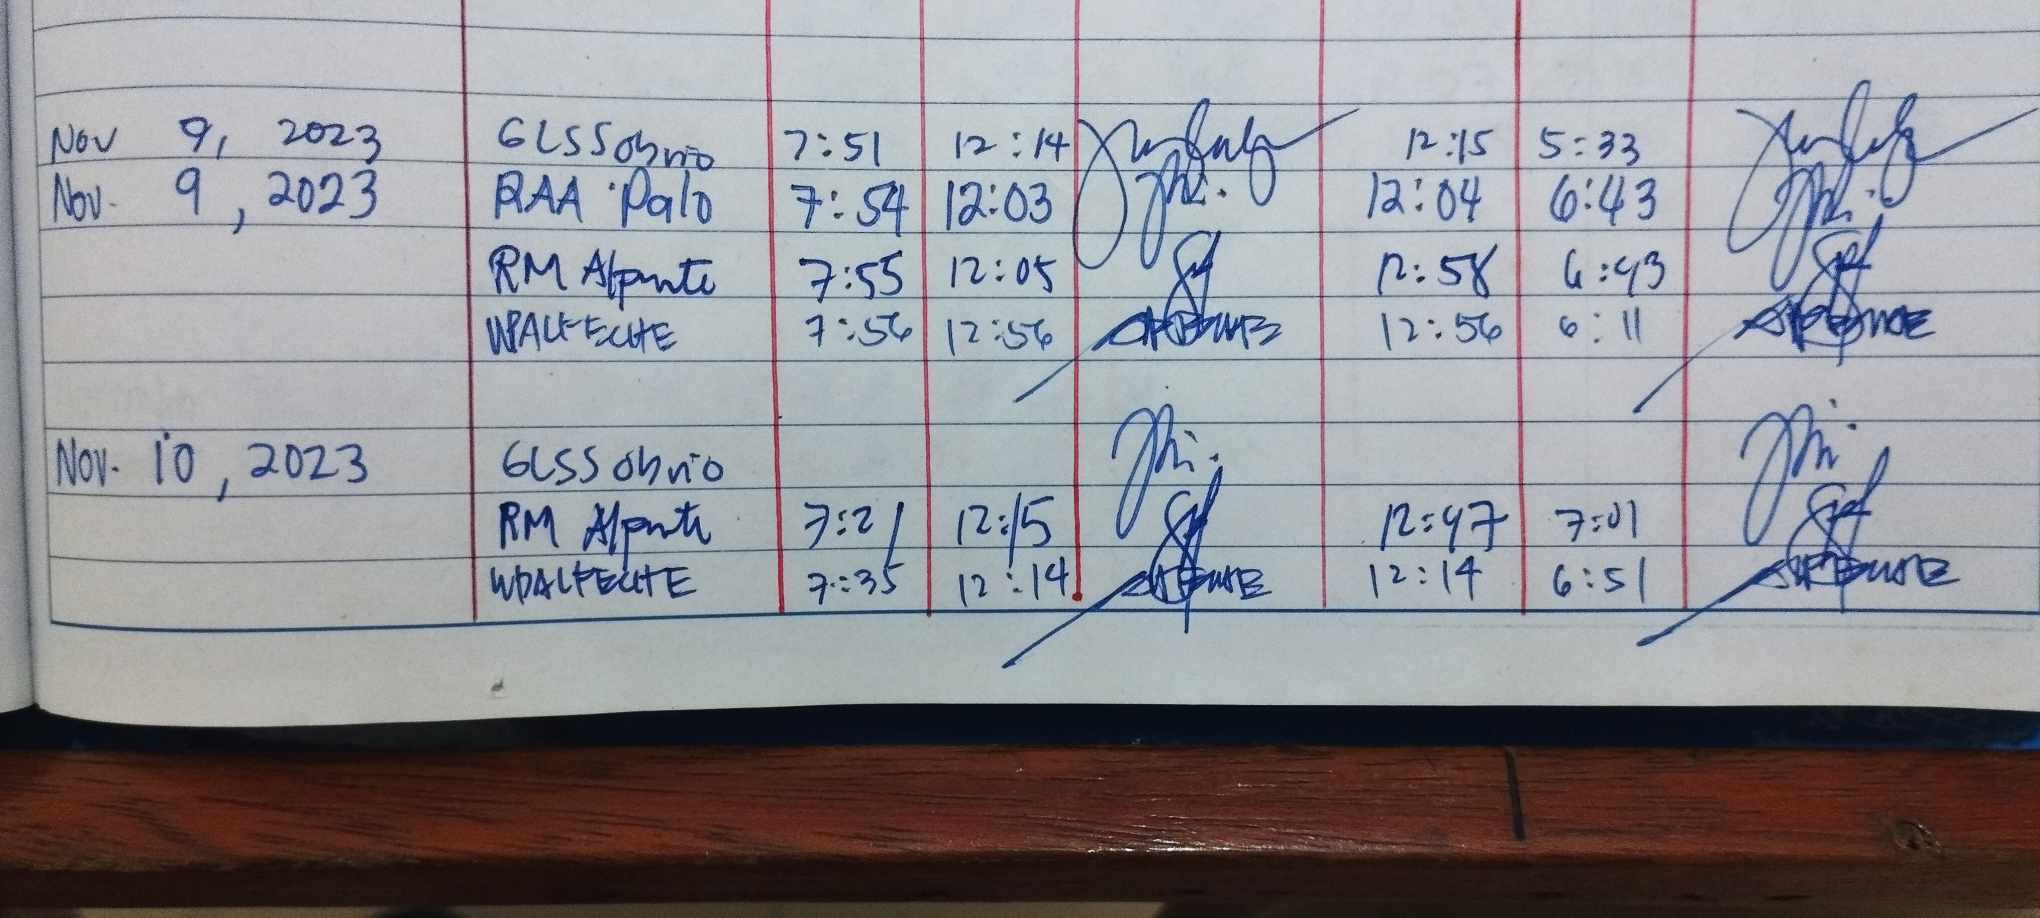 Nov 9, 2023 GLSSobrio 7:51 12:14 12:15 5:33
Nov. 9, 2023 RAA Palo 7:54 12:03 12:04 6:43
RM Alpante 7:55 12:05 12:58 6:43
WPALFECHE 7:56 12:56 12:56 6:11
Nov. 10, 2023 GLSSobrio
RM Alpante 7:21 12:15 12:47 7:01
WPALFECHE 7:35 12:14 12:14 6:51